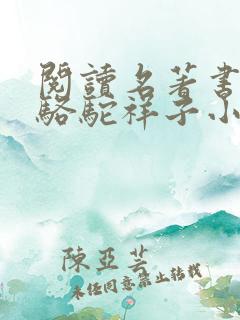 閱讀名著書
駱駝祥子小
陳亞芸
未經同意禁止轉載